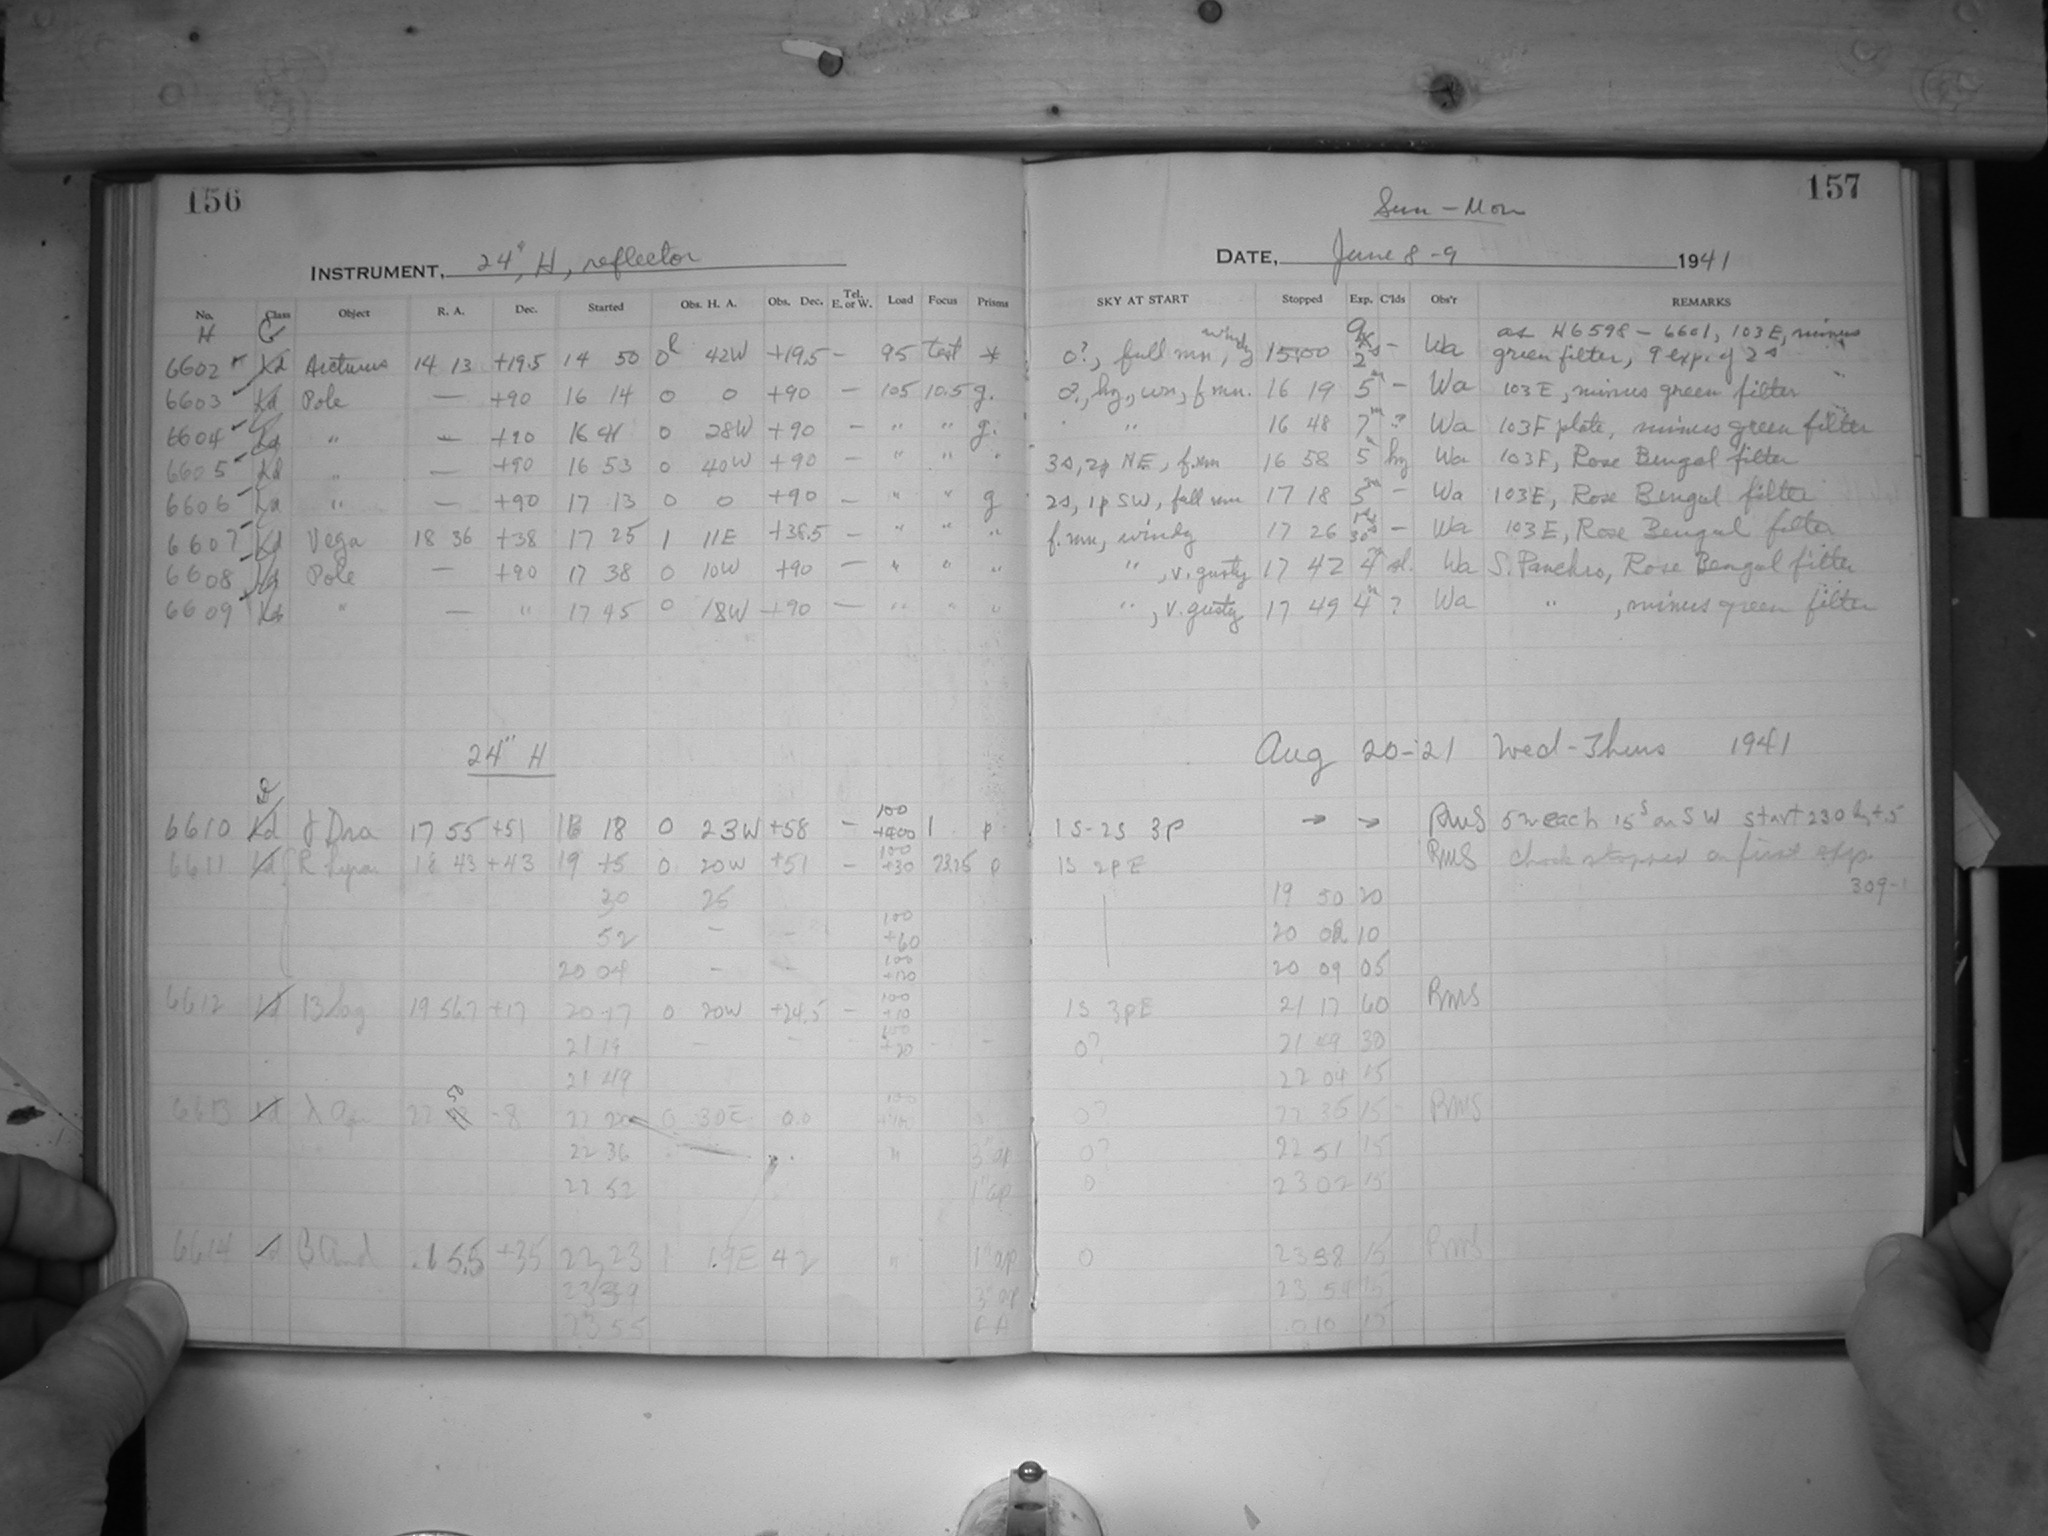 156
157
Sun - Mon
INSTRUMENT, 24", H, reflector
DATE, June 8-9 1941
No. Class Object R. A. Dec. Started Obs. H. A. Obs. Dec. Tel. E. or W. Load Focus Prisms SKY AT START Stopped Exp. C'lds Obs'r REMARKS
H G as H6598 - 6601, 103E, minus
6602 Kd Arcturus 14 13 +19.5 14 50 0 42W +19.5 - 95 test * 0?, full mn, windy 15 00 9x 2s - Wa green filter, 9 exp. of 2s
6603 Kd Pole — +90 16 14 0 0 +90 — 105 10.5 g. 0?, hzy, wn, f mn. 16 19 5m - Wa 103E, minus green filter
6604 Kd " — +90 16 41 0 28W +90 — " " g. " " 16 48 7m ? Wa 103F plate, minus green filter
6605 Kd " — +90 16 53 0 40W +90 — " " " 3s, 2p NE, f. mn 16 58 5 hzy Wa 103F, Rose Bengal filter
6606 Kd " — +90 17 13 0 0 +90 — " " g 2s, 1p SW, full mn 17 18 5m - Wa 103E, Rose Bengal filter
6607 Kd Vega 18 36 +38 17 25 1 11E +38.5 — " " " f. mn, windy 17 26 30s - Wa 103E, Rose Bengal filter
6608 Kd Pole — +90 17 38 0 10W +90 — " " " ", v. gusty 17 42 4m sl. Wa S. Panchro, Rose Bengal filter
6609 Kd " — " 17 45 0 18W +90 — " " " ", v. gusty 17 49 4m ? Wa " , minus green filter
24" H
Aug 20-21 Wed-Thurs 1941
6610 Kd Dra 17 55 +51 18 18 0 23W +58 - 100 +400 1 p 1S-2S 3P → → RMS 5 each 15s on SW start 230
6611 Kd R Lyra 18 43 +43 19 +5 0 20W +51 - 100 +30 p 1S 2PE RMS clock stopped on first exp.
309-1
30 25 19 50 20
52 - - 100 +60 20 02 10
20 04 - - 100 +120 20 09 05
6612 Kd 19 56.7 +17 20 17 0 20W +24.5 - 100 +10 1S 3PE 21 17 60 RMS
21 19 - - 100 +20 - - 0? 21 49 30
21 49 22 04 15
6613 Kd λ Aqr 22 -8 22 20 0 30E 0.0 100 +100 0? 22 35 15 - RMS
22 36 " 3" ap 0? 22 51 15
22 52 1" ap 0 23 02 15
6614 Kd And 1 5.5 +35 22 23 1 19E 42 " 1" ap 0 23 38 15 RMS
23 39 3" ap 23 54 15
23 55 0 10 15